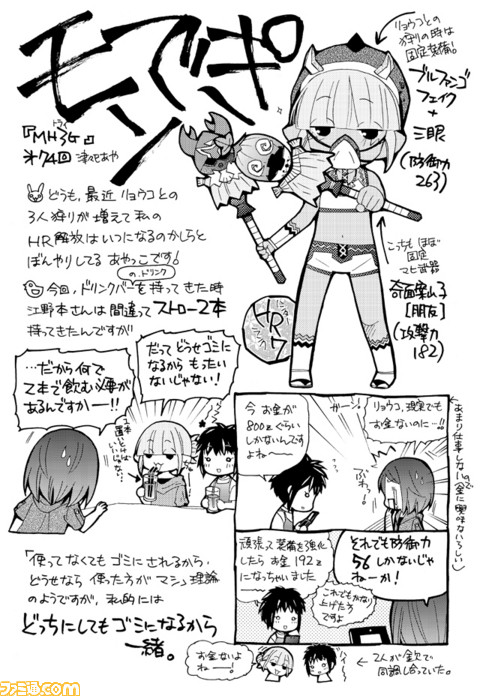 モンでキ。
『MH3G』
トライ
才74回 津々巳あや
リョウコとの
狩りの時は
固定装備。
ブルファンゴ
フェイク
+
三眼
(防御力
263)
こっちもほぼ
固定
マヒ武器
奇面案山子
[朋友]
(攻撃力
182)
HR7
どうも,最近 リョウコとの
3人狩りが増えて私の
HR解放はいつになるのかしらと
ぼんやりしてる あやっこです!
の、ドリンク
今回,ドリンクバーを持ってきた時
江野本さんは間違ってストロー2本
持ってきたんですが!!
だってどうせゴミに
なるからもったい
ないじゃない!
…だから何で
2本で飲む必要が
あるんですかー!!
今お金が
800zぐらい
しかないんです
よね〜
ガーン!
リョウコ,現実でも
お金ないのに…!!
ぶわっ!
あまり仕事しない(ので)
(金に興味ないらしい)
頑張って装備を強化
したらお金192z
になっちゃいました
それでも防御力
56しかないじゃ
ねーか!
これでもかなり
上げた方
ですよ
「使ってなくてもゴミにされるから,
どうせなら使った方がマシ」理論
のようですが,私的には
どっちにしてもゴミになるから
一緒。
お金ないよ
ねー!
ハイー
2人が金欠で
同調し合っていた。
ファミ通.com